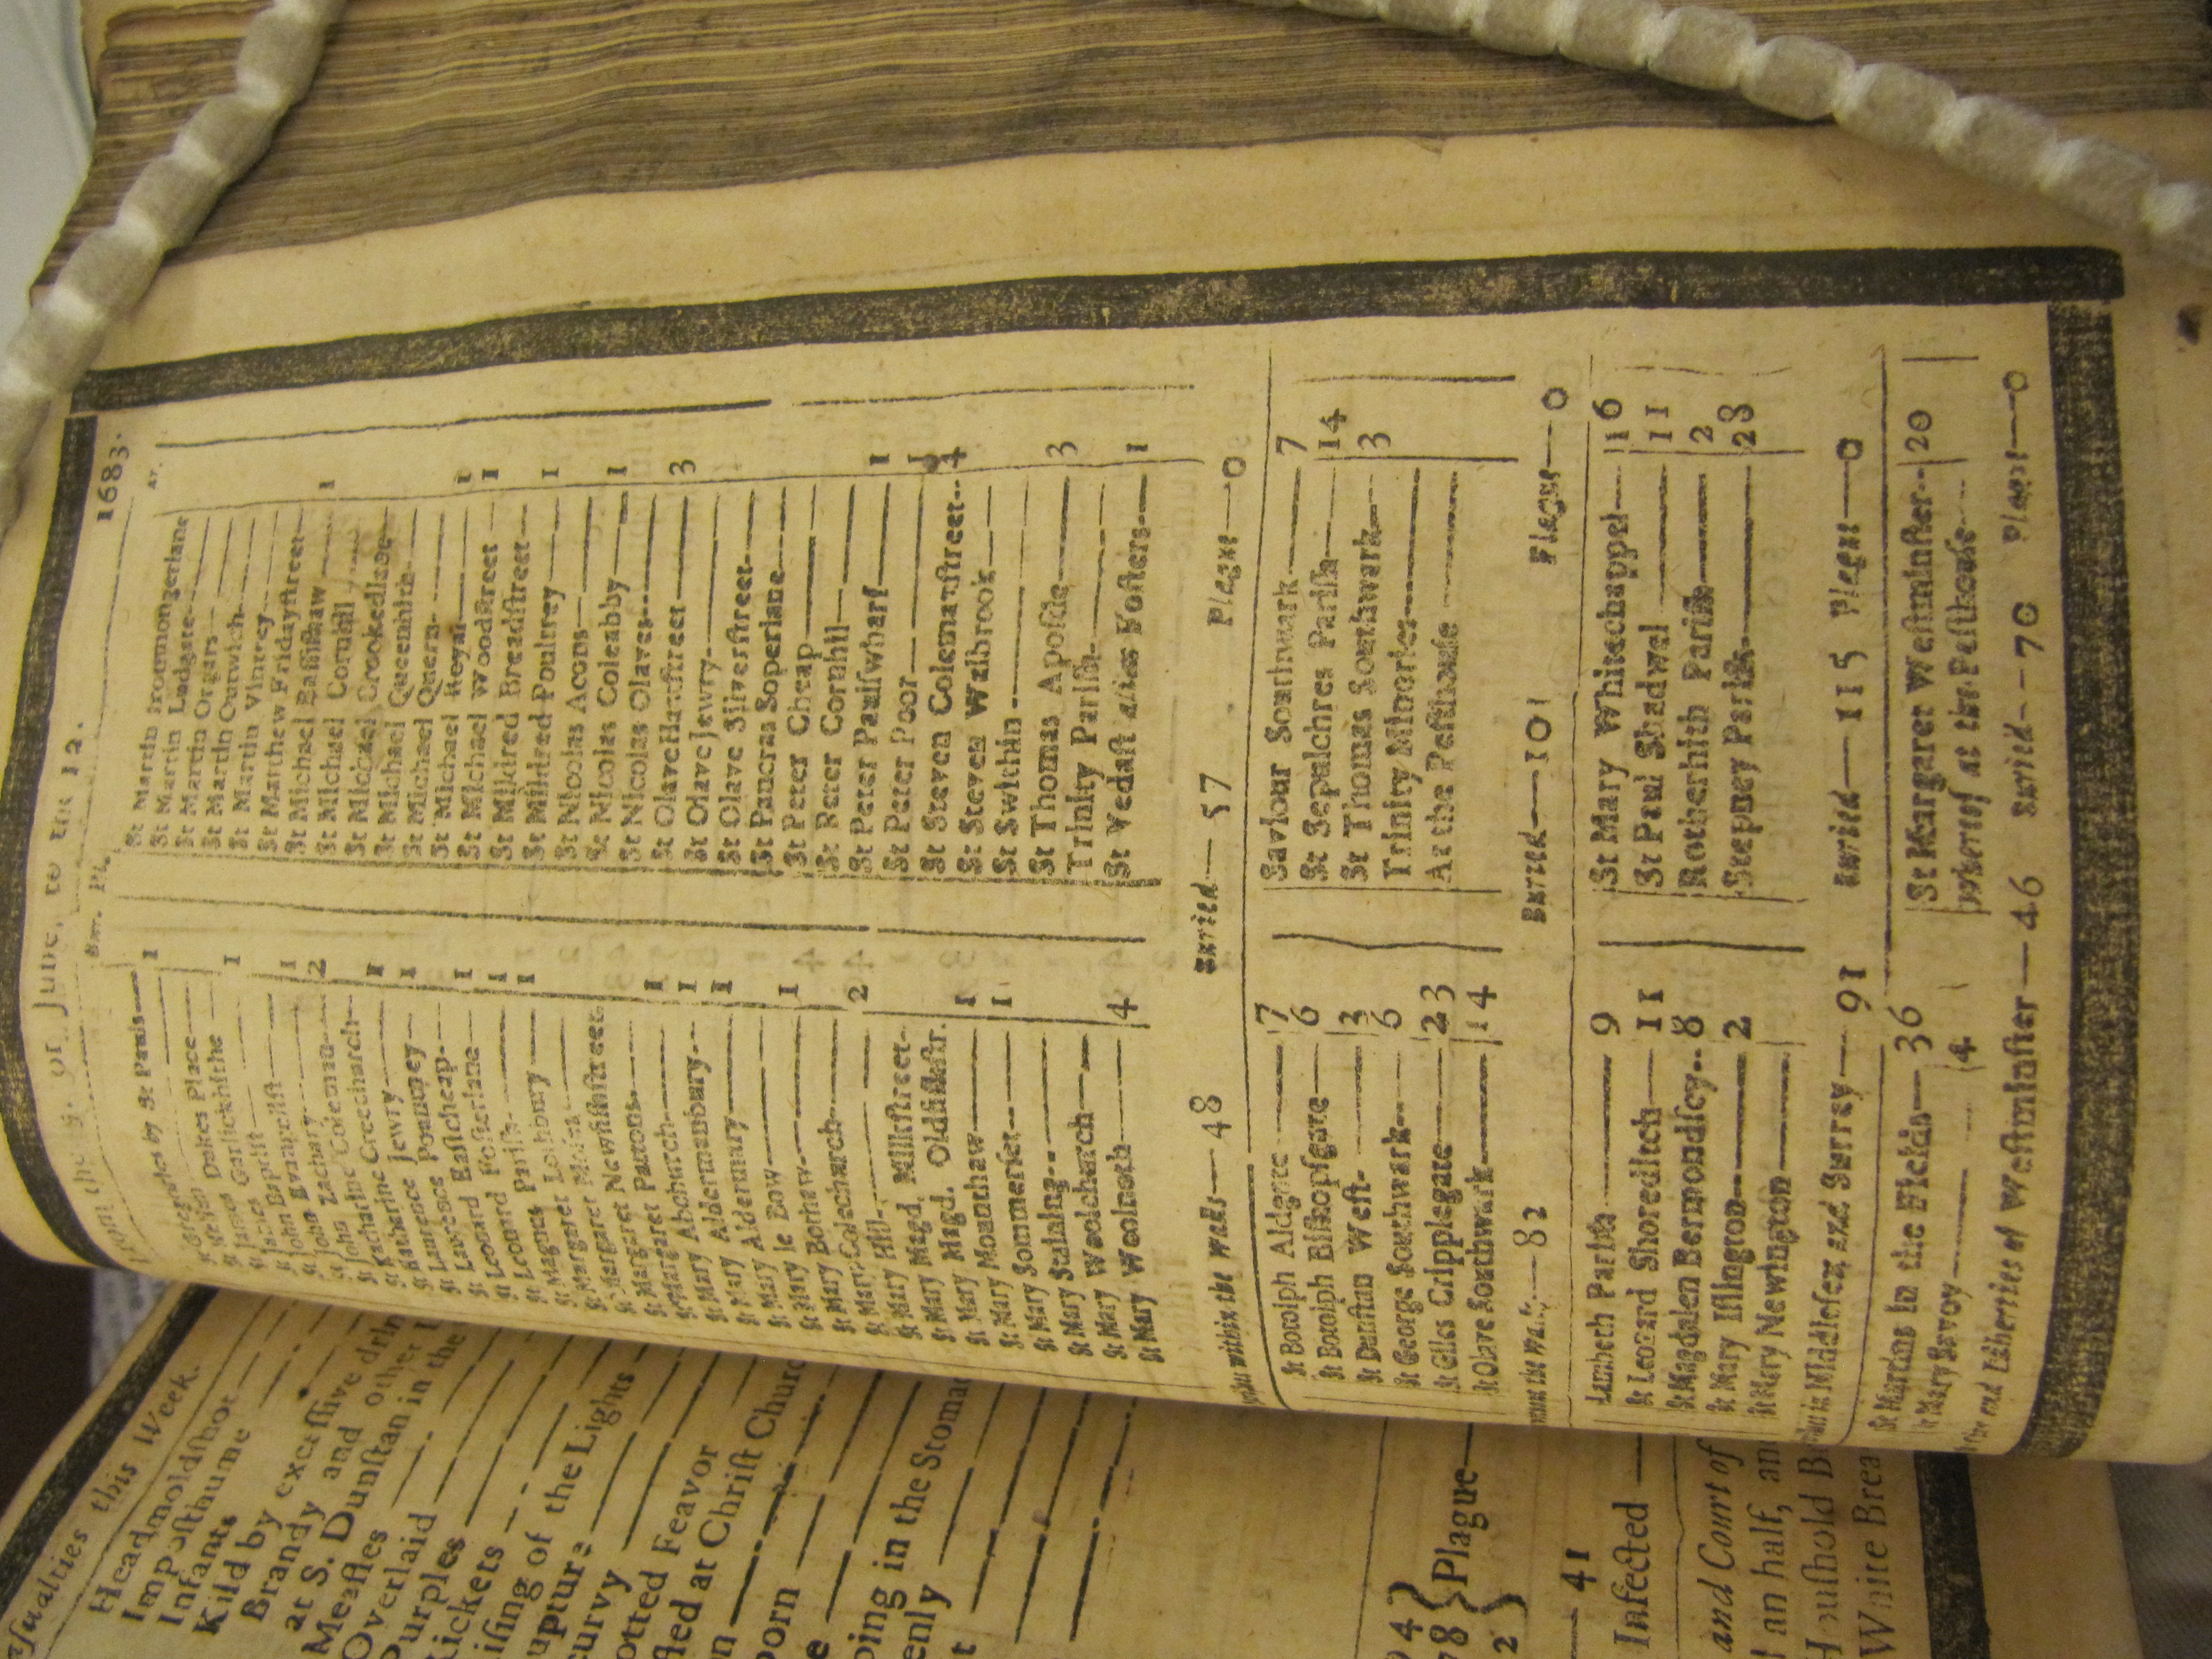 From the 5. of June, to the 12. 1683.
Bur. Pl.
St Martin Ironmongerlane
St Martin Ludgate
St Martin Orgars
St Martin Outwich
St Martin Vintrey
St Matthew Fridayſtreet
St Michael Baſſiſhaw 1
St Michael Cornhill
St Michael Crookedlane
St Michael Queenhith
St Michael Quern
St Michael Royal 1
St Michael Woodſtreet 1
St Mildred Breadſtreet
St Mildred Poultrey 1
St Nicolas Acons
St Nicolas Coleabby 1
St Nicolas Olaves
St Olave Hartſtreet 3
St Olave Jewry
St Olave Silverſtreet
St Pancras Soperlane
St Peter Cheap
St Peter Cornhil
St Peter Paulſwharf 1
St Peter Poor 1
St Steven Colemanſtreet 4
St Steven Walbrook
St Swithin
St Thomas Apoſtle 3
Trinity Pariſh
St Vedaſt alias Foſters 1
by St Pauls 1
Dukes Place
St James Garlickhithe 1
St John Baptiſt
St John Evangeliſt 1
St John Zachary 2
St Katharine Coleman
St Katharine Creechurch 1
St Laurence Jewry 1
St Laurence Pountney
St Leonard Eaſtcheap 1
St Leonard Foſterlane 1
St Magnus Pariſh 1
St Margaret Lothbury
St Margaret Moſes
St Margaret Newfiſhſtreet
St Margaret Pattons 1
St Mary Abchurch 1
St Mary Aldermanbury 1
St Mary Aldermary
St Mary le Bow 1
St Mary Bothaw
St Mary Colechurch 2
St Mary Hill
St Mary Magd. Milkſtreet
St Mary Magd. Oldfiſhſtr.
St Mary Mounthaw 1
St Mary Sommerſet 1
St Mary Staining
St Mary Woolchurch
St Mary Woolnoth 4
within the walls—48 Buried—57 Plague—0
St Botolph Aldgate 7
St Botolph Biſhopſgate 6
St Dunſtan Weſt
St George Southwark 6
St Giles Cripplegate 23
St Olave Southwark 14
Saviour Southwark 7
St Sepulchres Pariſh 14
St Thomas Southwark 3
Trinity Minories
At the Peſthouſe
without the walls—82 Buried—101 Plague—0
Lambeth Pariſh 9
St Leonard Shoreditch 11
St Magdalen Bermondſey 8
St Mary Iſlington 2
St Mary Newington
St Mary Whitechappel 16
St Paul Shadwel 11
Rotherhith Pariſh 2
Stepney Pariſh 28
in Middleſex and Surrey—91 Buried—115 Plague—0
St Martins in the Fields 36
St Mary Savoy 4
St Margaret Weſtminſter 20
whereof at the Peſthouſe
and Liberties of Weſtminſter—46 Buried—70 Plague—0
this Week.
Headmoldſhot
Impoſthume
Infants
Kild by exceſſive
Brandy and other
at S. Dunſtan in the
Meaſles
Overlaid
Purples
Rickets
iſing of the Lights
upture
curvy
otted Feavor
led at Chriſt Church
n
born
e
ping in the Stomac
enly
t
4
8 } Plague
2
41
Infected
and Court of
an half, an
Houſhold B
White Brea